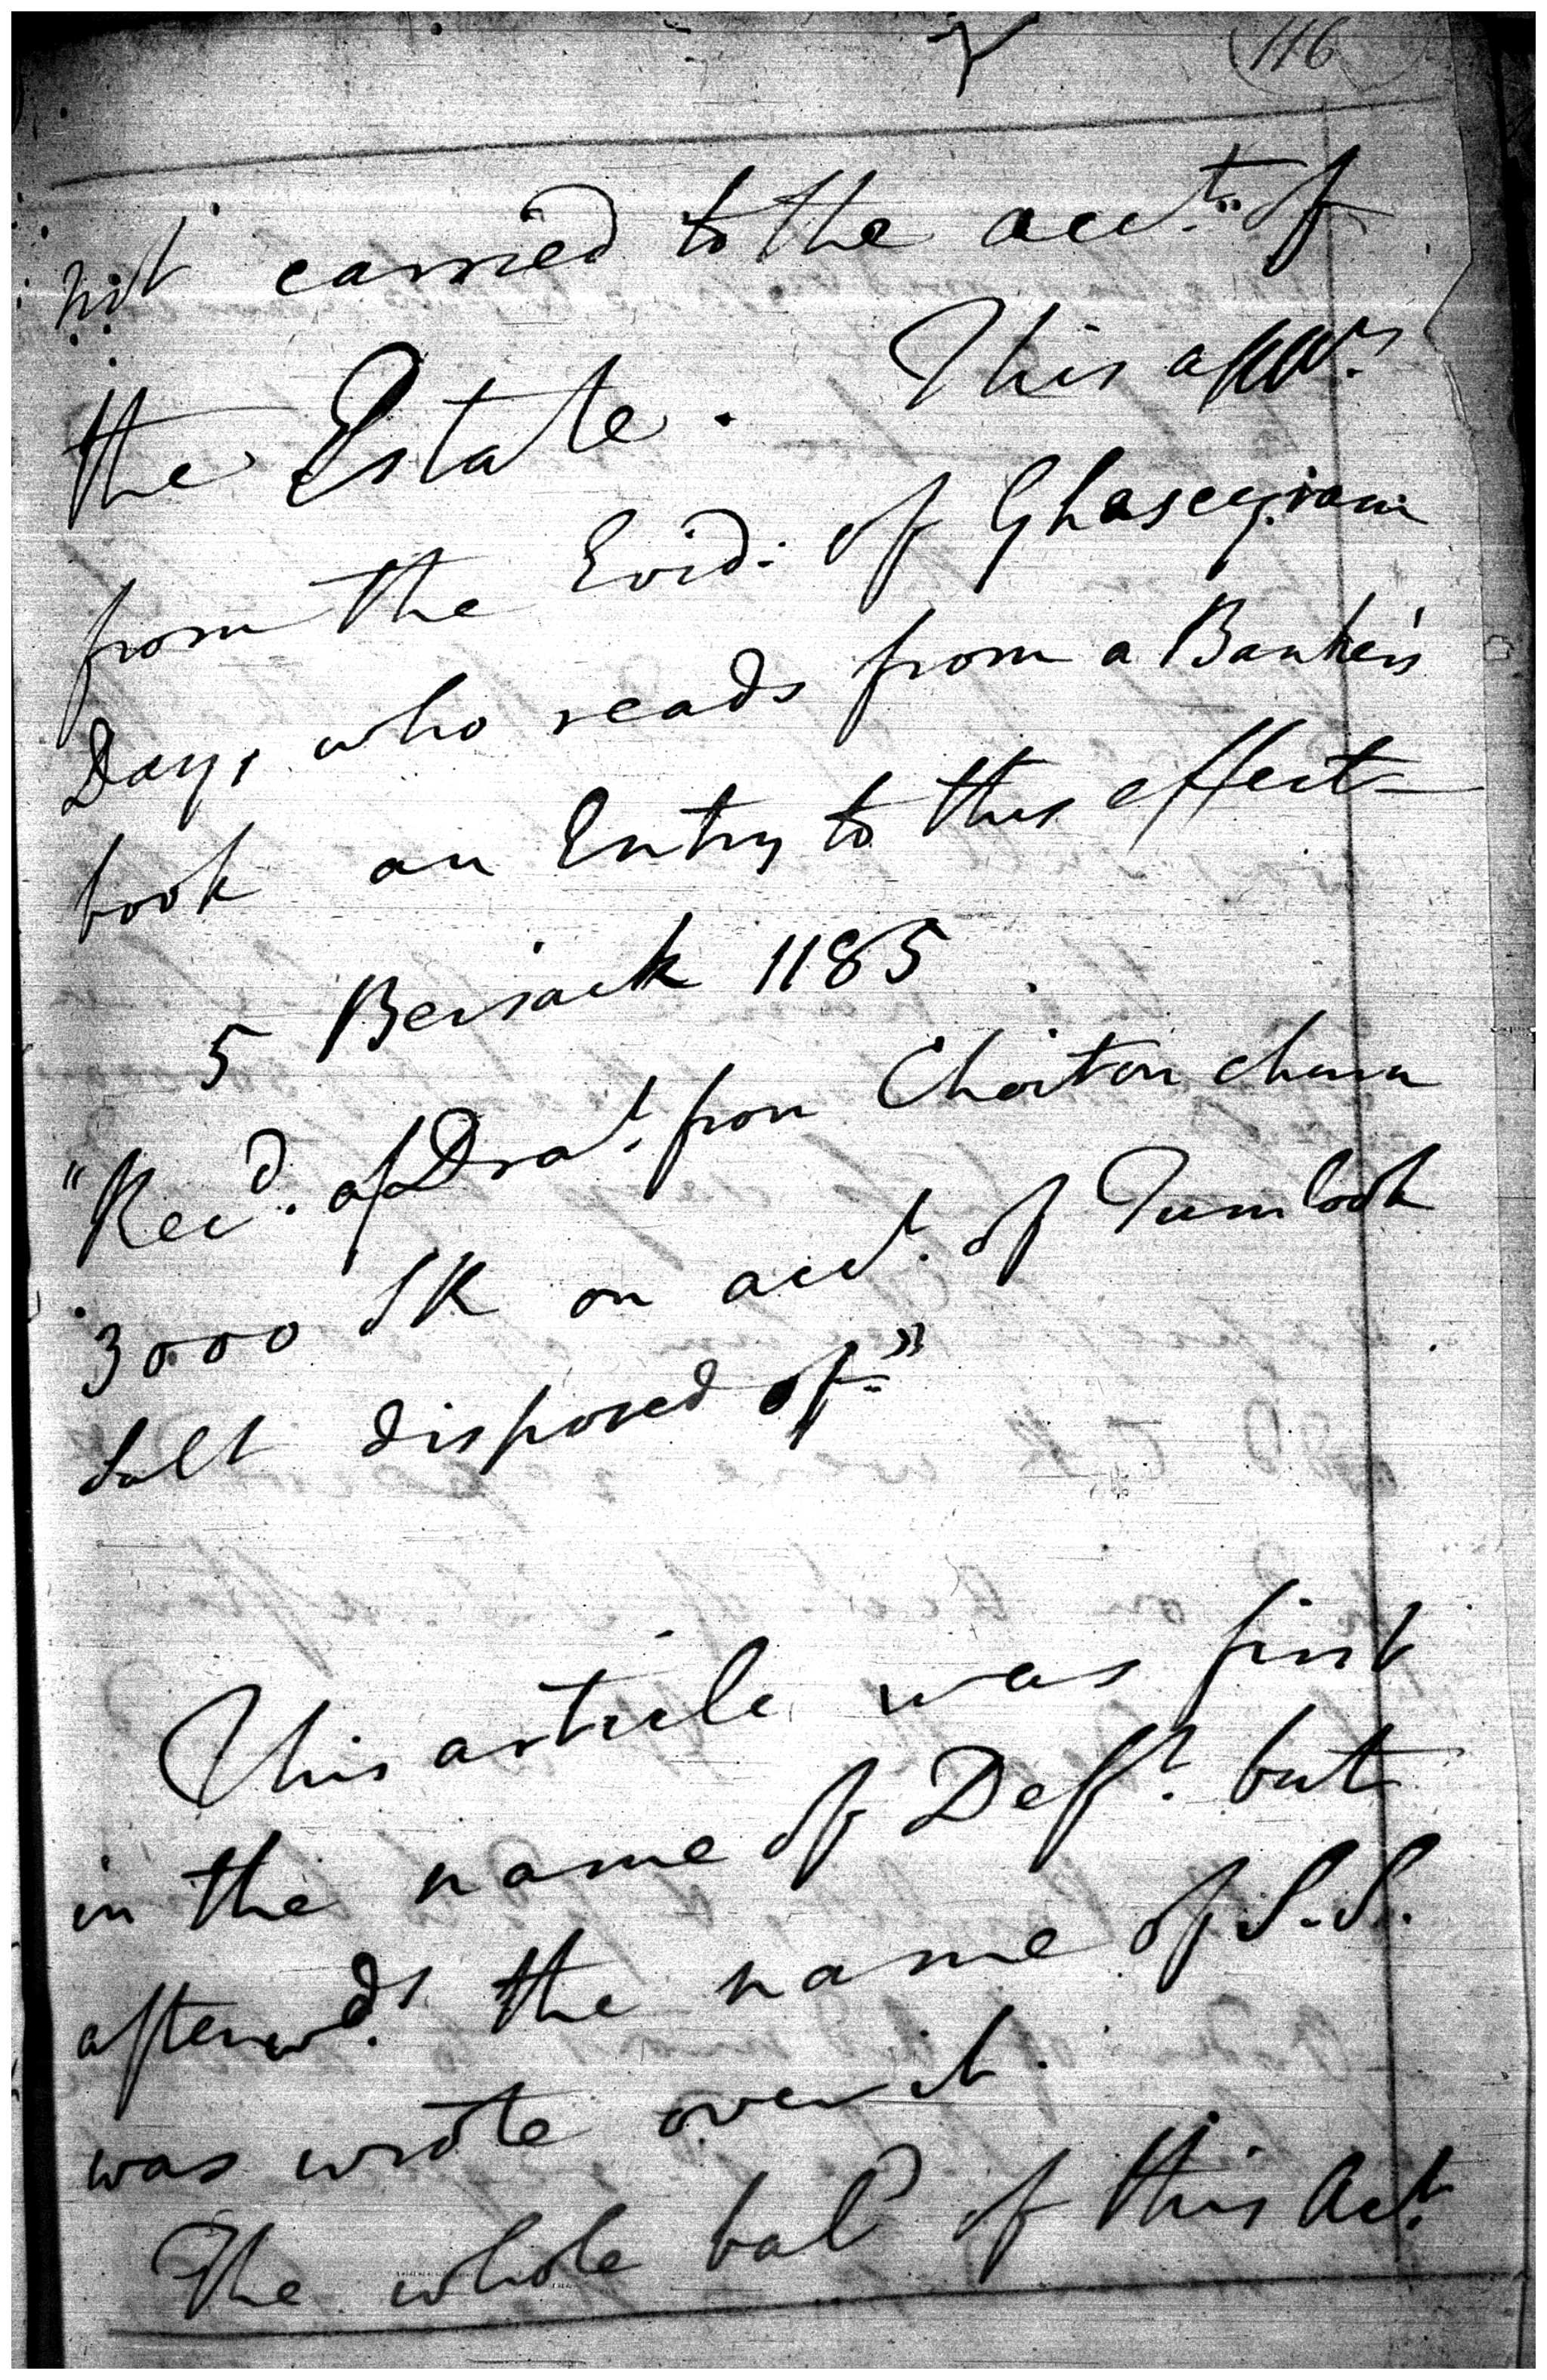 116
not carried to the acct. of
the Estate. This apprs.
from the Evid: of Ghaseeram
Day, who reads from a Banker's
book an Entry to this effect
5 Beisack 1185
"Recd. of Drat. from Choiton churn
3000 SR on acct. of Tumlook
Salt disposed of"
This article was first
in the name of Defft. but
afterwds. the name of S.S.
was wrote over it.
The whole bal of this Act.